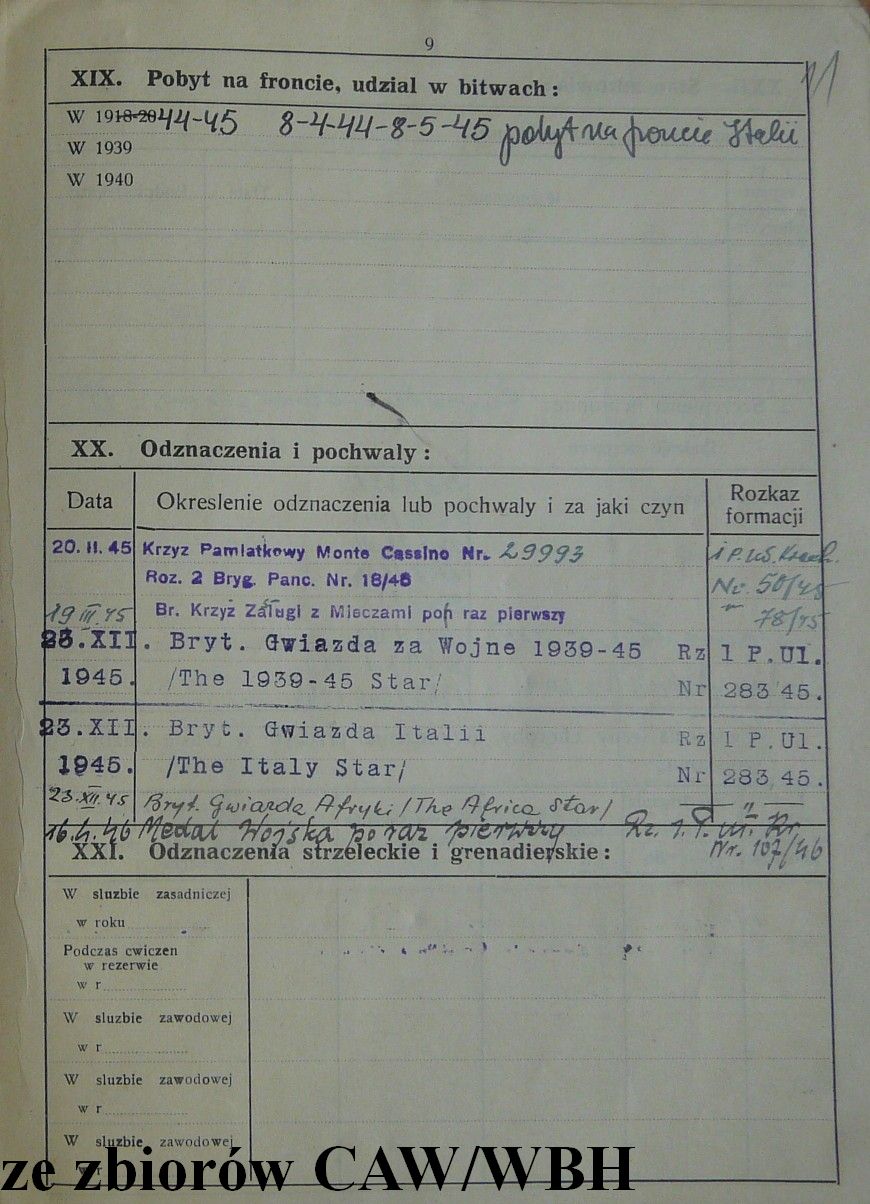 9
XIX. Pobyt na froncie, udzial w bitwach : 11
W 1918-20 44-45 8-4-44-8-5-45 pobyt na froncie Italii
W 1939
W 1940
XX. Odznaczenia i pochwaly :
Data Okreslenie odznaczenia lub pochwaly i za jaki czyn Rozkaz formacji
20. II. 45 Krzyz Pamiatkowy Monte Cassino Nr. 29993 1 P. Uł. Krech.
Roz. 2 Bryg. Panc. Nr. 18/45 Nr. 50/45
19 III 45 Br. Krzyż Zasługi z Mieczami po raz pierwszy " 78/45
23.XII. Bryt. Gwiazda za Wojne 1939-45 Rz 1 P.Ul.
1945. /The 1939-45 Star/ Nr 283/45.
23.XII. Bryt. Gwiazda Italii Rz 1 P.Ul.
1945. /The Italy Star/ Nr 283/45.
23.XII.45 Bryt. Gwiazda Afryki /The Africa Star/ — " —
Medal Wojska po raz pierwszy Rz. 1. P. Uł. Kr.
XXI. Odznaczenia strzeleckie i grenadierskie : Nr. 107/46
W sluzbie zasadniczej
w roku
Podczas cwiczen
w rezerwie
w r
W sluzbie zawodowej
w r
W sluzbie zawodowej
w r
W sluzbie zawodowej
w r
ze zbiorów CAW/WBH